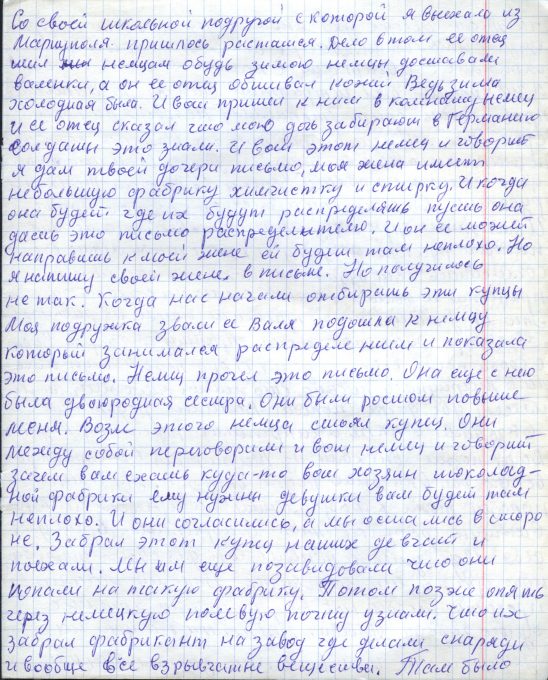 Со своей школьной подругой с которой я выехала из
Мариуполя пришлось растатся. Дело в том ее отец
шил немцам обудь зимою немцы доставали
валенки, а он ее отец обшивал кожей Ведь зима
холодная была. И вот пришел к ним в комнату немец
И ее отец сказал что мою дочь забирают в Германию
солдаты это знали. И вот этот немец и говорит
я дам твоей дочери письмо, моя жена имеет
небольшую фабрику химчистку и стирку. И когда
она будет где их будут распределять пусть она
дасть это письмо распределителю. И он ее может
направить к моей жене ей будет там неплохо. Но
я напишу своей жене в письме. Но получилось
не так. Когда нас начали отбирать эти купцы
Моя подружка звали ее Валя подошла к немцу
который занимался распределением и показала
это письмо. Немец прочел это письмо. Она еще с нею
была двоюродная сестра. Они были ростом повыше
меня. Возле этого немца стоял купец. Они
между собой переговорили и вот немец и говорит
зачем вам ехать куда-то вот хозяин шоколад-
ной фабрики ему нужны девушки вам будет там
неплохо. И они согласились, а мы остались в сторо
не. Забрал этот купец наших девчат и
поехали. Мы им еще позавидовали что они
попали на такую фабрику. Потом позже опять
через немецкую полевую почту узнали. Что их
забрал фабрикант на завод где делали снаряди
и вообще все взрывчатие вещества. Там было